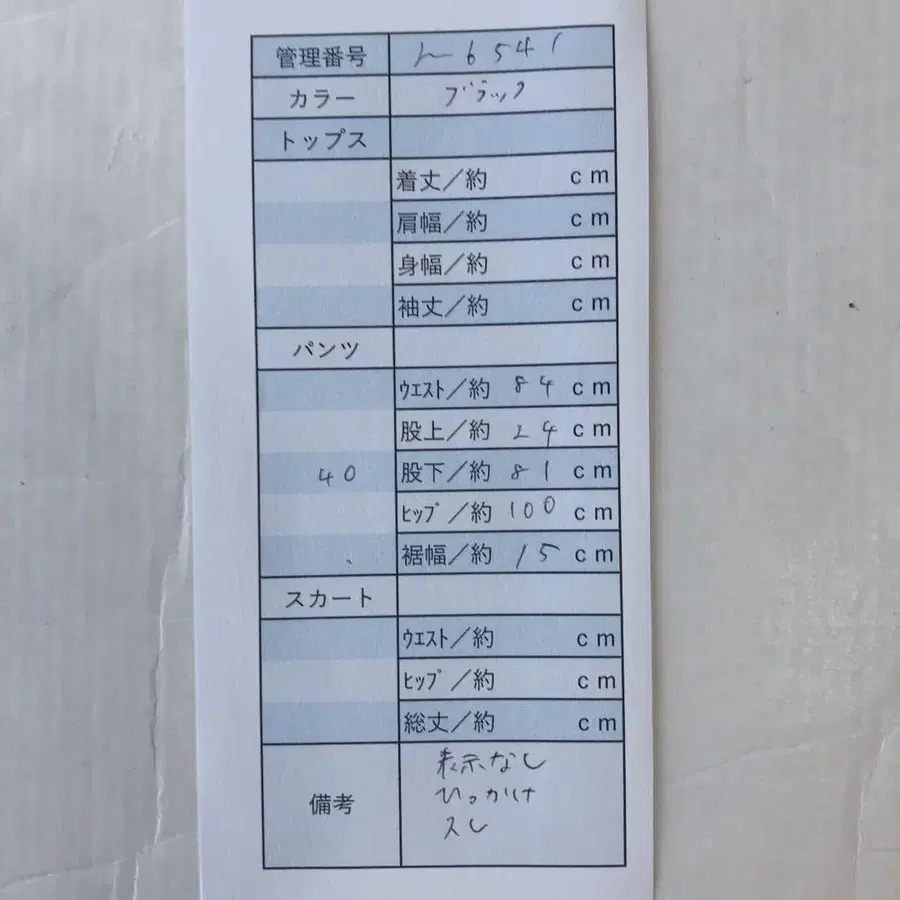 管理番号 6541
カラー ブラック
トップス
着丈／約 cm
肩幅／約 cm
身幅／約 cm
袖丈／約 cm
パンツ
ｳｴｽﾄ／約 84 cm
股上／約 24 cm
40 股下／約 81 cm
ﾋｯﾌﾟ／約 100 cm
裾幅／約 15 cm
スカート
ｳｴｽﾄ／約 cm
ﾋｯﾌﾟ／約 cm
総丈／約 cm
備考
表示なし
ひっかけ
スレ